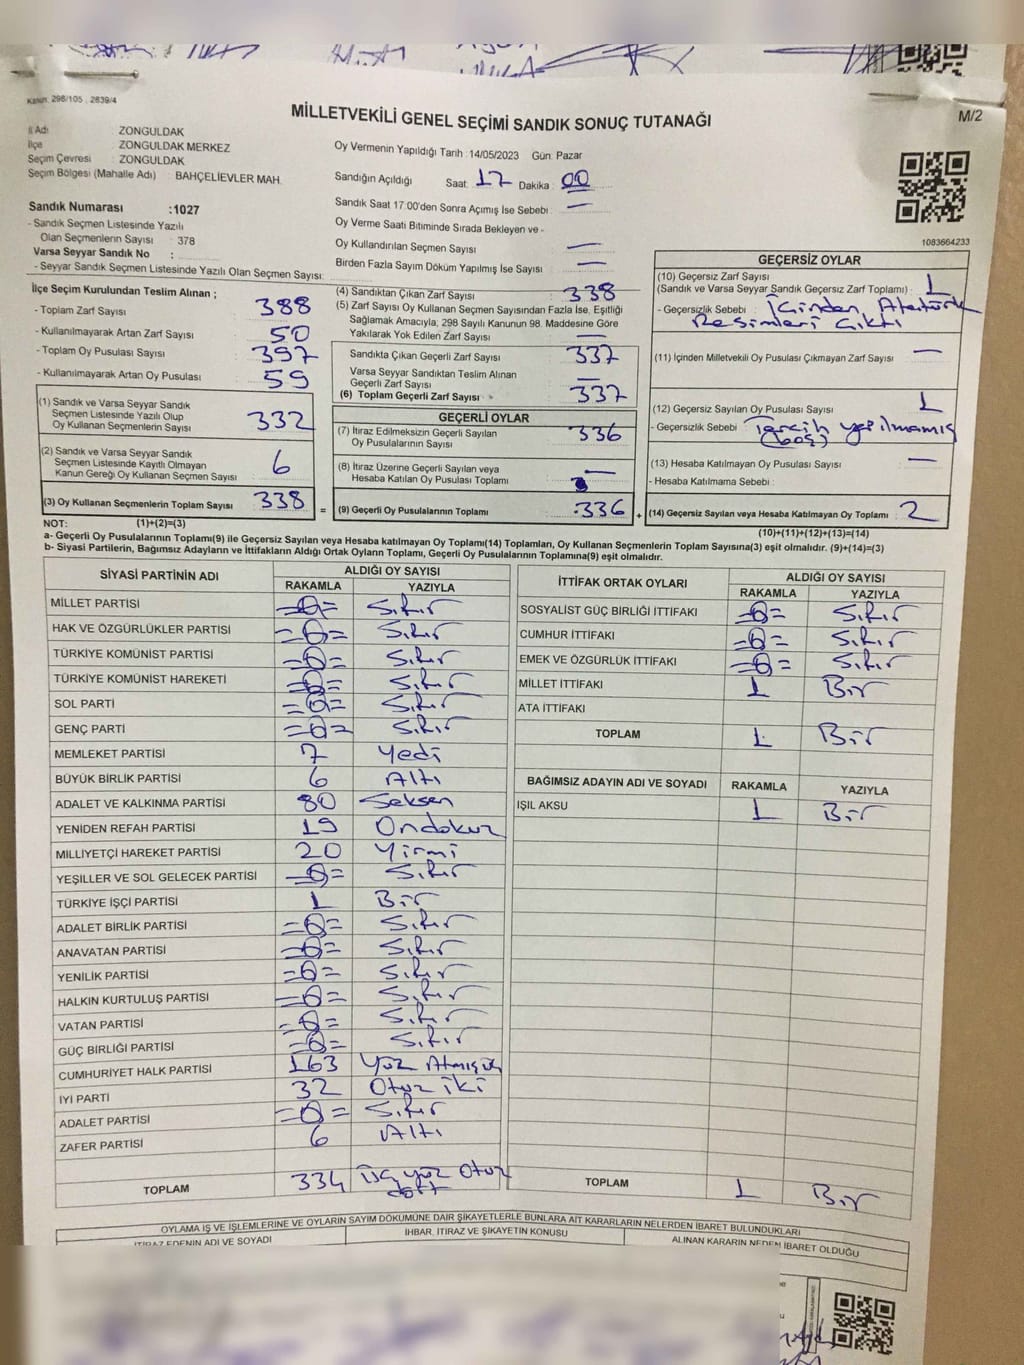 Kanun: 298/105 , 2839/4
MİLLETVEKİLİ GENEL SEÇİMİ SANDIK SONUÇ TUTANAĞI
M/2
İl Adı : ZONGULDAK
İlçe : ZONGULDAK MERKEZ
Seçim Çevresi : ZONGULDAK
Seçim Bölgesi (Mahalle Adı) : BAHÇELİEVLER MAH.
Sandık Numarası :1027
- Sandık Seçmen Listesinde Yazılı
Olan Seçmenlerin Sayısı : 378
Varsa Seyyar Sandık No :
- Seyyar Sandık Seçmen Listesinde Yazılı Olan Seçmen Sayısı:
Oy Vermenin Yapıldığı Tarih :14/05/2023 Gün: Pazar
Sandığın Açıldığı Saat: 17 Dakika : 00
Sandık Saat 17:00'den Sonra Açımış İse Sebebi : —
Oy Verme Saati Bitiminde Sırada Bekleyen ve -
Oy Kullandırılan Seçmen Sayısı : —
Birden Fazla Sayım Döküm Yapılmış İse Sayısı : —
1083664233
İlçe Seçim Kurulundan Teslim Alınan ;
- Toplam Zarf Sayısı : 388
- Kullanılmayarak Artan Zarf Sayısı : 50
- Toplam Oy Pusulası Sayısı : 397
- Kullanılmayarak Artan Oy Pusulası : 59
(1) Sandık ve Varsa Seyyar Sandık
Seçmen Listesinde Yazılı Olup
Oy Kullanan Seçmenlerin Sayısı : 332
(2) Sandık ve Varsa Seyyar Sandık
Seçmen Listesinde Kayıtlı Olmayan
Kanun Gereği Oy Kullanan Seçmen Sayısı : 6
(3) Oy Kullanan Seçmenlerin Toplam Sayısı : 338
(4) Sandıktan Çıkan Zarf Sayısı : 338
(5) Zarf Sayısı Oy Kullanan Seçmen Sayısından Fazla İse, Eşitliği
Sağlamak Amacıyla; 298 Sayılı Kanunun 98. Maddesine Göre
Yakılarak Yok Edilen Zarf Sayısı : —
Sandıkta Çıkan Geçerli Zarf Sayısı : 337
Varsa Seyyar Sandıktan Teslim Alınan
Geçerli Zarf Sayısı : —
(6) Toplam Geçerli Zarf Sayısı : 337
GEÇERLİ OYLAR
(7) İtiraz Edilmeksizin Geçerli Sayılan
Oy Pusulalarının Sayısı : 336
(8) İtiraz Üzerine Geçerli Sayılan veya
Hesaba Katılan Oy Pusulası Toplamı : —
= (9) Geçerli Oy Pusulalarının Toplamı : 336 +
GEÇERSİZ OYLAR
(10) Geçersiz Zarf Sayısı
(Sandık ve Varsa Seyyar Sandık Geçersiz Zarf Toplamı) : 1
- Geçersizlik Sebebi : İçinden Atatürk
Resimleri Çıktı
(11) İçinden Milletvekili Oy Pusulası Çıkmayan Zarf Sayısı : —
(12) Geçersiz Sayılan Oy Pusulası Sayısı : 1
- Geçersizlik Sebebi : Tercih yapılmamış
(boş)
(13) Hesaba Katılmayan Oy Pusulası Sayısı : —
- Hesaba Katılmama Sebebi :
(14) Geçersiz Sayılan veya Hesaba Katılmayan Oy Toplamı : 2
NOT: (1)+(2)=(3) (10)+(11)+(12)+(13)=(14)
a- Geçerli Oy Pusulalarının Toplamı(9) ile Geçersiz Sayılan veya Hesaba katılmayan Oy Toplamı(14) Toplamları, Oy Kullanan Seçmenlerin Toplam Sayısına(3) eşit olmalıdır. (9)+(14)=(3)
b- Siyasi Partilerin, Bağımsız Adayların ve İttifakların Aldığı Ortak Oyların Toplamı, Geçerli Oy Pusulalarının Toplamına(9) eşit olmalıdır.
SİYASİ PARTİNİN ADI ALDIĞI OY SAYISI
RAKAMLA YAZIYLA
MİLLET PARTİSİ =0= Sıfır
HAK VE ÖZGÜRLÜKLER PARTİSİ =0= Sıfır
TÜRKİYE KOMÜNİST PARTİSİ =0= Sıfır
TÜRKİYE KOMÜNİST HAREKETİ =0= Sıfır
SOL PARTİ =0= Sıfır
GENÇ PARTİ =0= Sıfır
MEMLEKET PARTİSİ 7 Yedi
BÜYÜK BİRLİK PARTİSİ 6 Altı
ADALET VE KALKINMA PARTİSİ 80 Seksen
YENİDEN REFAH PARTİSİ 19 Ondokuz
MİLLİYETÇİ HAREKET PARTİSİ 20 Yirmi
YEŞİLLER VE SOL GELECEK PARTİSİ =0= Sıfır
TÜRKİYE İŞÇİ PARTİSİ 1 Bir
ADALET BİRLİK PARTİSİ =0= Sıfır
ANAVATAN PARTİSİ =0= Sıfır
YENİLİK PARTİSİ =0= Sıfır
HALKIN KURTULUŞ PARTİSİ =0= Sıfır
VATAN PARTİSİ =0= Sıfır
GÜÇ BİRLİĞİ PARTİSİ =0= Sıfır
CUMHURİYET HALK PARTİSİ 163 Yüz Atmışüç
İYİ PARTİ 32 Otuz iki
ADALET PARTİSİ =0= Sıfır
ZAFER PARTİSİ 6 Altı
TOPLAM 334 Üç yüz Otuz
dört
İTTİFAK ORTAK OYLARI ALDIĞI OY SAYISI
RAKAMLA YAZIYLA
SOSYALİST GÜÇ BİRLİĞİ İTTİFAKI =0= Sıfır
CUMHUR İTTİFAKI =0= Sıfır
EMEK VE ÖZGÜRLÜK İTTİFAKI =0= Sıfır
MİLLET İTTİFAKI 1 Bir
ATA İTTİFAKI
TOPLAM 1 Bir
BAĞIMSIZ ADAYIN ADI VE SOYADI RAKAMLA YAZIYLA
IŞIL AKSU 1 Bir
TOPLAM 1 Bir
OYLAMA İŞ VE İŞLEMLERİNE VE OYLARIN SAYIM DÖKÜMÜNE DAİR ŞİKAYETLERLE BUNLARA AİT KARARLARIN NELERDEN İBARET BULUNDUKLARI
İTİRAZ EDENİN ADI VE SOYADI İHBAR, İTİRAZ VE ŞİKAYETİN KONUSU ALINAN KARARIN NEDEN İBARET OLDUĞU